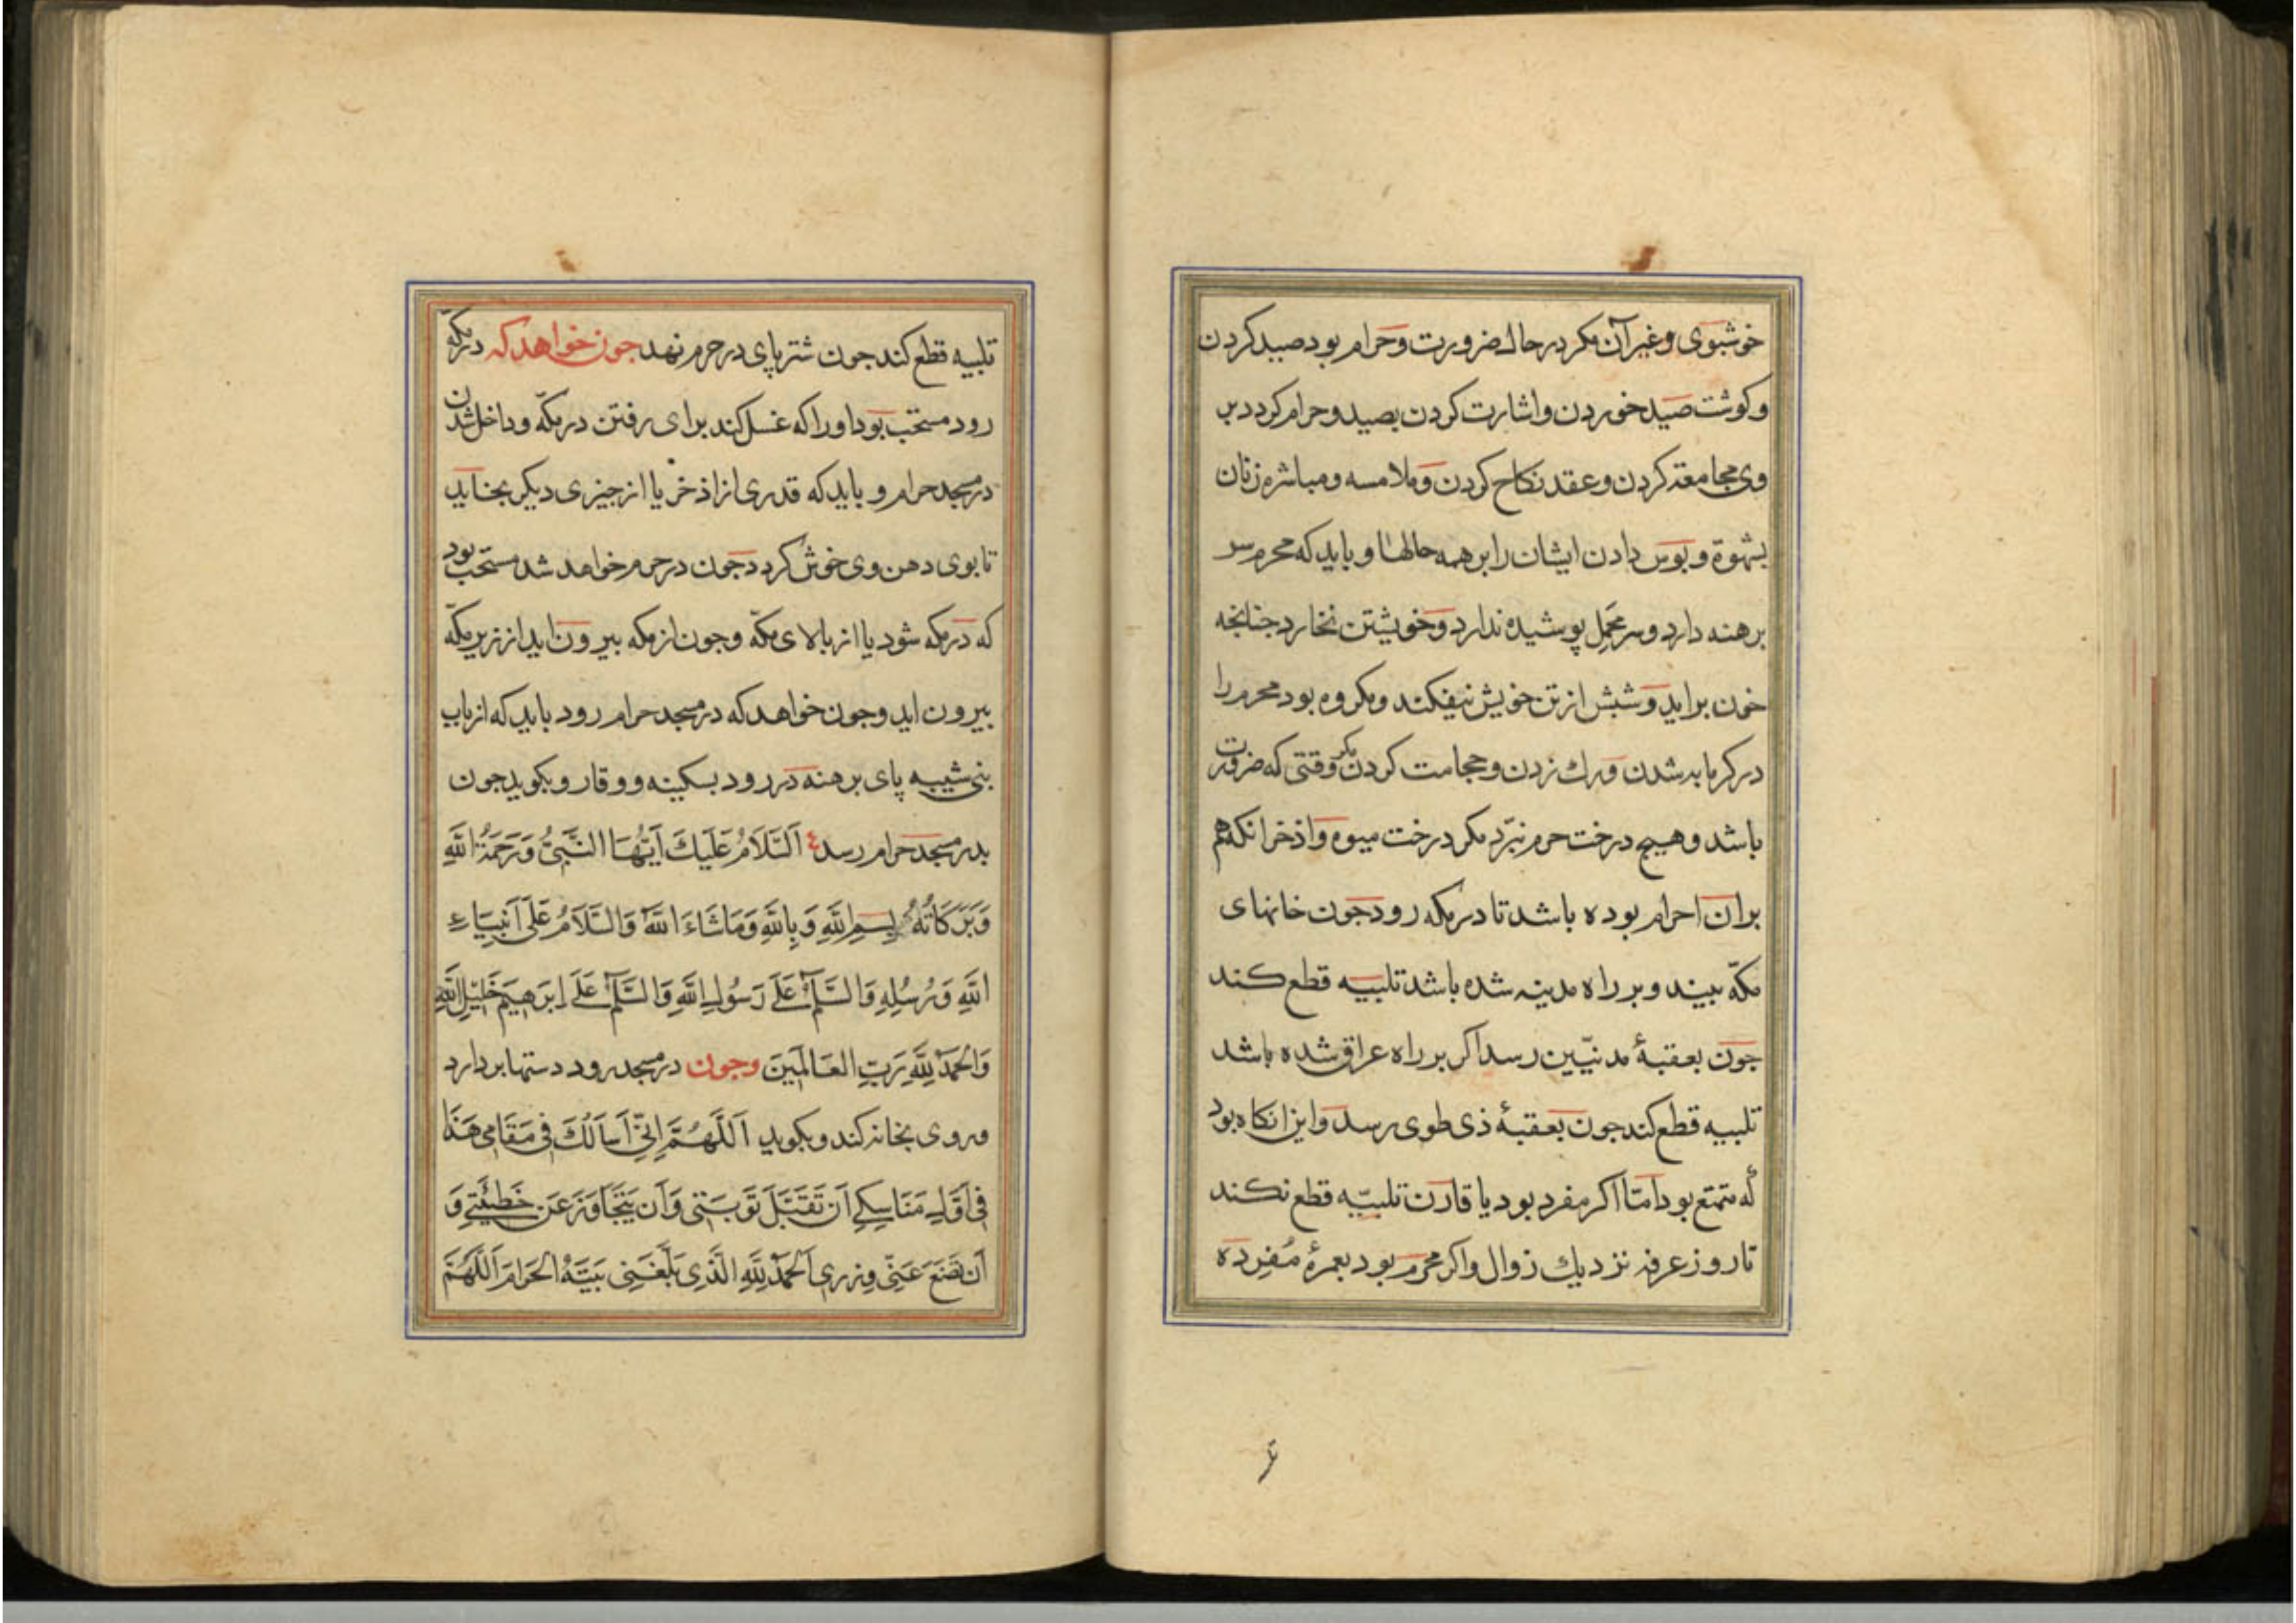 خوشبوی وغیر آن مکر در حال ضرورت وحرام بود صید کردن
وکوشت صید خوردن واشارت کردن بصید وحرام کردد بر
وی مجامعة کردن وعقد نکاح کردن وملامسه ومباشره زنان
بشهوة وبوس دادن ایشان را بر همه حالها و باید که محرم سر
برهنه دارد وسر محمل پوشیده ندارد وخویشتن نخارد جنانجه
خون براید وشبش از تن خویش نیفکند ومکروه بود محرم را
در کرمابه شدن ورك زدن وحجامت کردن مکر وقتی که ضرورت
باشد وهیج درخت حرم نبرد مکر درخت میوه واذخر انکه هم
بران احرام بوده باشد تا در مکه رود جون خانهای
مکّه ببیند وبر راه مدینه شده باشد تلبیه قطع کند
جون بعقبهٔ مدنیّین رسد اکر بر راه عراق شده باشد
تلبیه قطع کند جون بعقبهٔ ذی طوی رسد واین انکاه بود
که متمتع بود امّا اکر مفرد بود یا قارن تلبیّه قطع نکند
تا روز عرفه نزدیك زوال واکر محرم بود بعمرهٔ مُفرِدَه
تلبیه قطع کند جون شتر پای در حرم نهد جون خواهد که در مکّه
رود مستحب بود او را که غسل کند برای رفتن در مکّه وداخل شدن
در مسجد حرام و باید که قدری از اذخر یا از جیزی دیکر بخاید
تا بوی دهن وی خوش کردد جون در حرم خواهد شد مستحب بود
که در مکه شود یا از بالای مکّه وجون از مکه بیرون اید از زیر مکّه
بیرون اید وجون خواهد که در مسجد حرام رود باید که از باب
بنی شیبه پای برهنه در رود بسکینه ووقار وبکوید جون
بدر مسجد حرام رسد اَلسَّلَامُ عَلَیكَ اَیُّهَا النَّبِیُّ وَرَحمَةُ اللهِ
وَبَرَکَاتُهُ بِسمِ اللهِ وَبِاللهِ وَمَاشَاءَ اللهُ وَالسَّلَامُ عَلَی اَنبِیَاءِ
اللهِ وَرُسُلِهِ وَالسَّلَمُ عَلَی رَسُولِ اللهِ وَالسَّلَمُ عَلَی اِبرَهِیمَ خَلِیلِ اللهِ
وَالحَمدُ لِلهِ رَبِّ العَالَمِینَ وجون در مسجد رود دستها بردارد
وروی بخانه کند وبکوید اَللّٰهُمَّ اِنِّی اَسأَلُكَ فِی مَقَامِی هَذَا
فِی اَوَّلِ مَنَاسِکِی اَن تَقَبَّلَ تَوبَتِی وَاَن یَتَجَاوَزَ عَن خَطِیئَتِی وَ
اَن تَضَعَ عَنِّی وِزرِی اَلحَمدُ لِلهِ الَّذِی بَلَّغَنِی بَیتَهُ الحَرَامَ اَللّٰهُمَّ